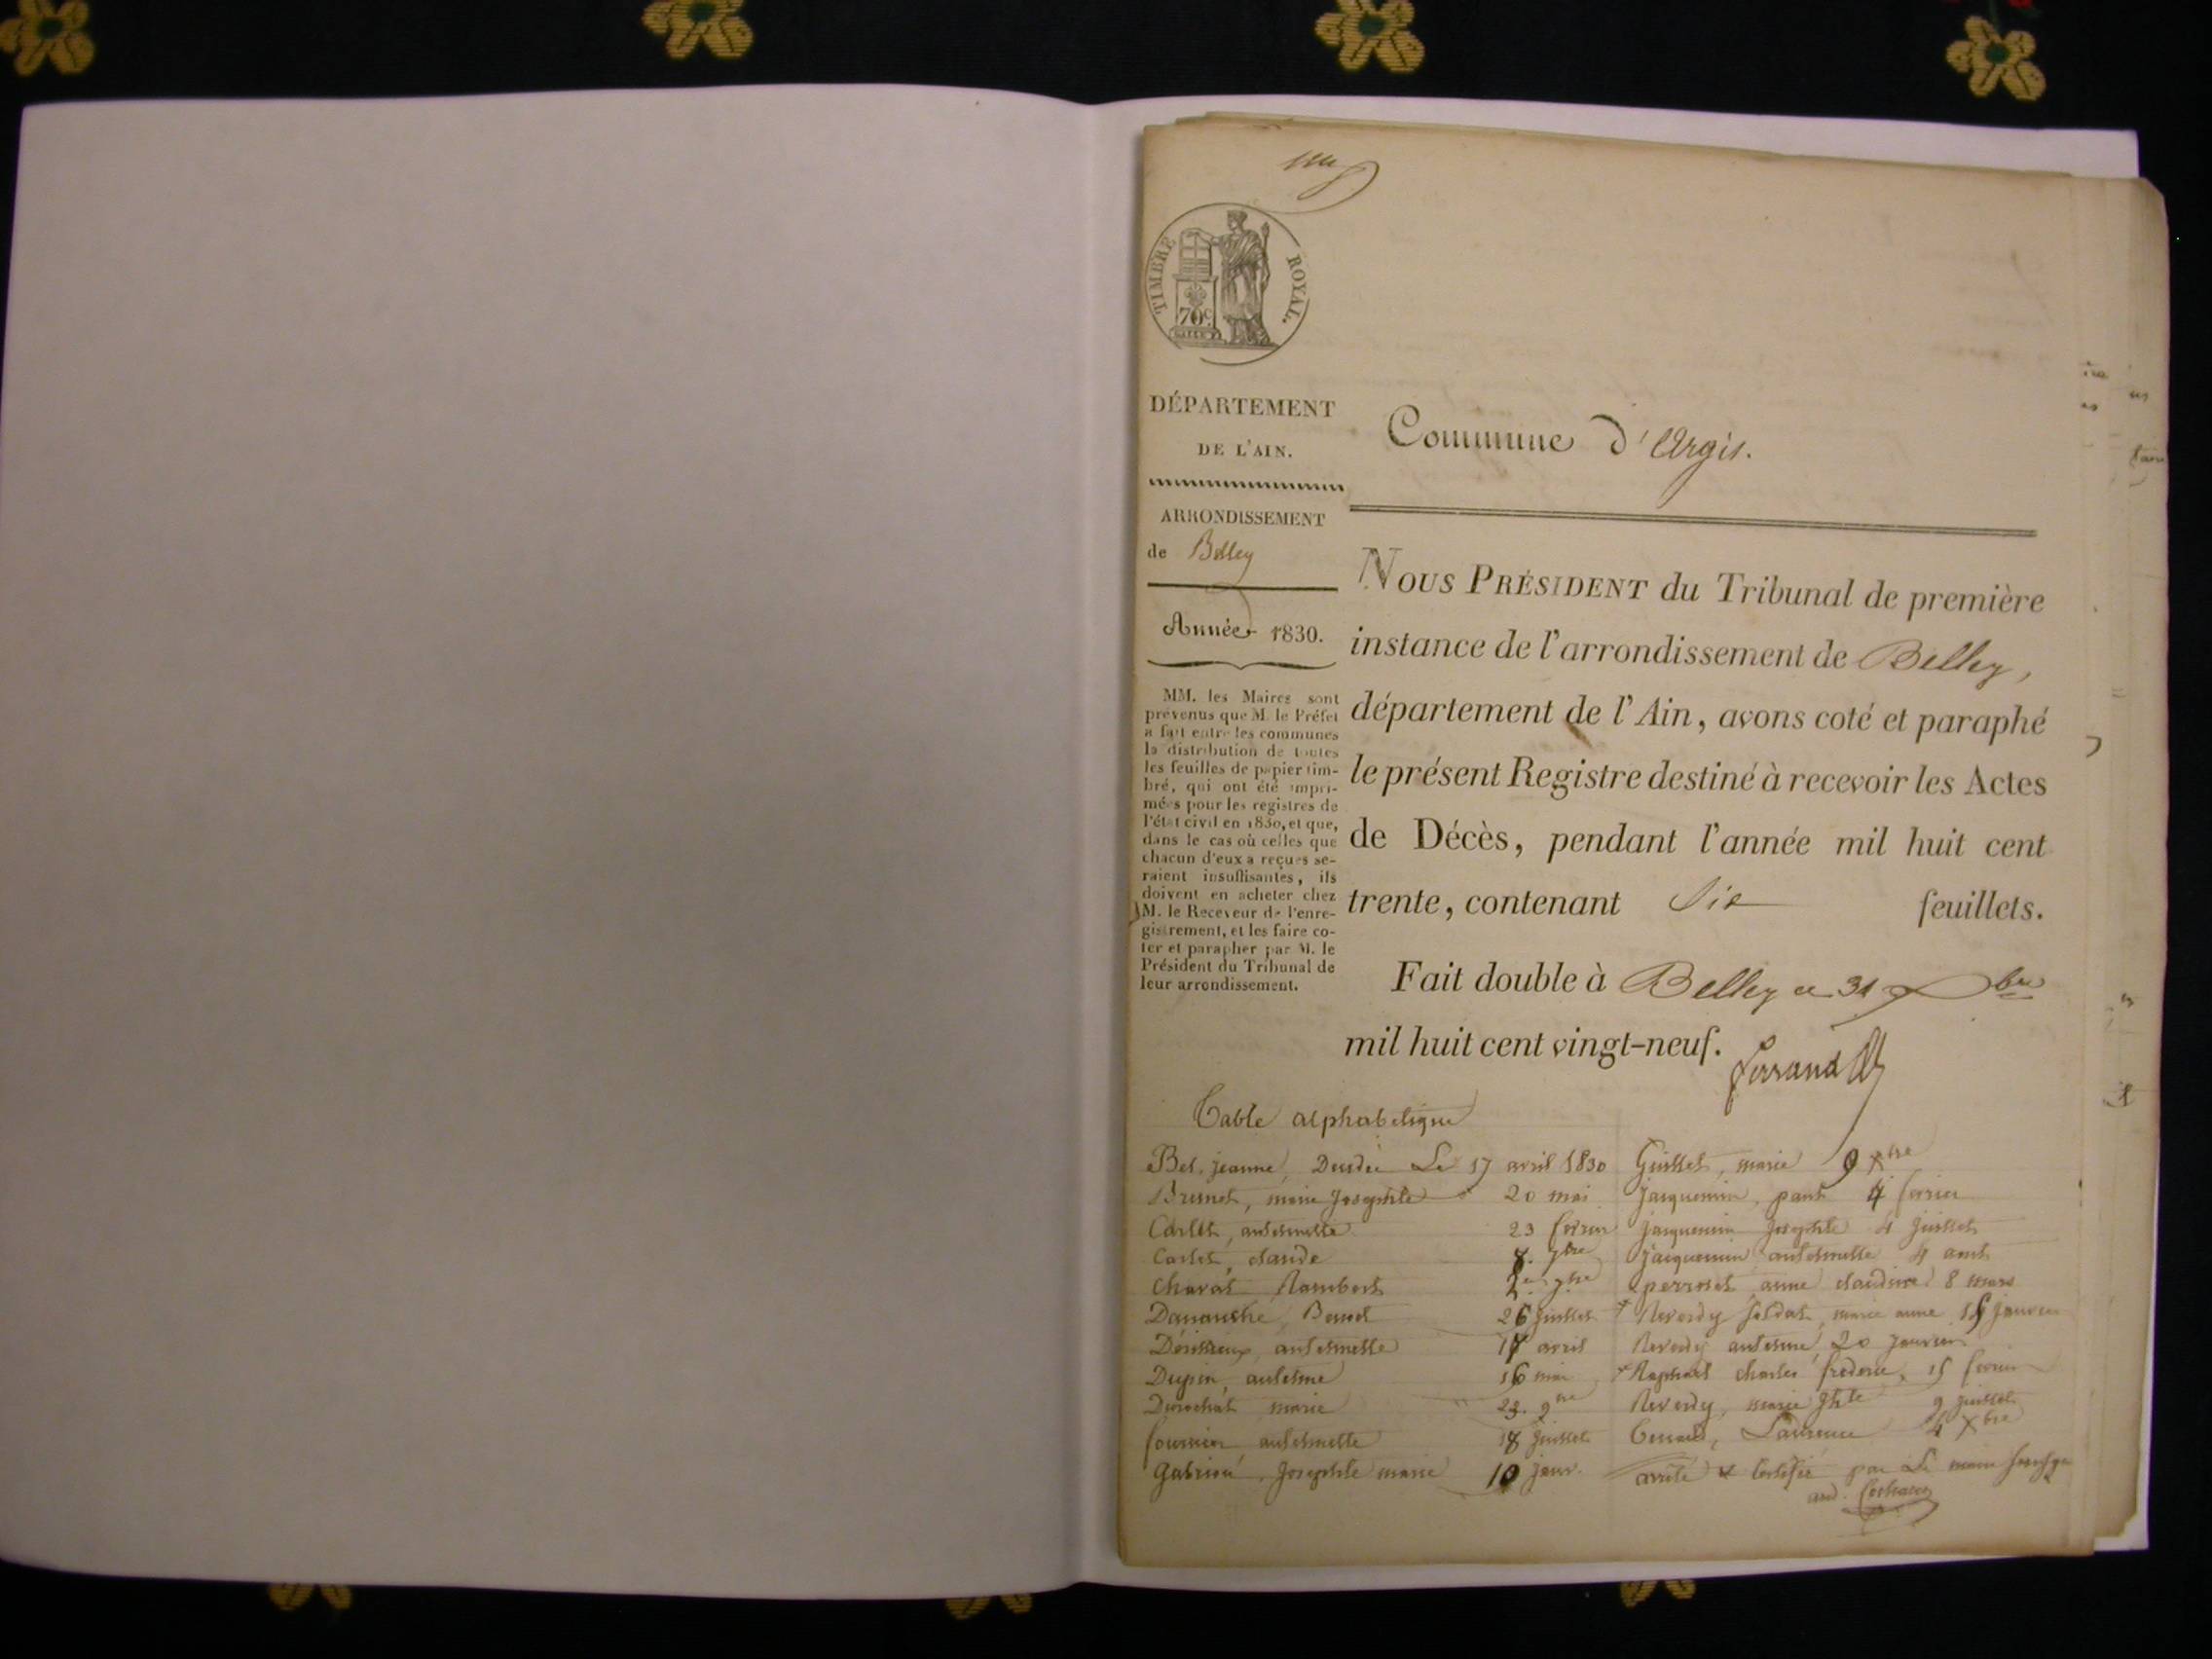 TIMBRE ROYAL.
70c
DÉPARTEMENT
DE L'AIN.
ARRONDISSEMENT
de Belley
Année 1830.
MM. les Maires sont
prévenus que M. le Préfet
a fait entre les communes
la distribution de toutes
les feuilles de papier tim-
bré, qui ont été impri-
mées pour les registres de
l'état civil en 1830, et que,
dans le cas où celles que
chacun d'eux a reçues se-
raient insuffisantes, ils
doivent en acheter chez
M. le Receveur de l'enre-
gistrement, et les faire co-
ter et parapher par M. le
Président du Tribunal de
leur arrondissement.
Commune d'Argis.
NOUS PRÉSIDENT du Tribunal de première
instance de l'arrondissement de Belley,
département de l'Ain, avons coté et paraphé
le présent Registre destiné à recevoir les Actes
de Décès, pendant l'année mil huit cent
trente, contenant Six feuillets.
Fait double à Belley ce 31 Xbre
mil huit cent vingt-neuf.
Table alphabetique
Bel, jeanne, Le 17 avril 1830
Brunet, marie Josephte 20 mai
Carlet, anthelmette 23 fevrier
Carlet, claude 8. 7bre
Charat Rambert 7bre
Benoit 26 juillet
anthelmette 17 avril
Dupin, anthelme 16 mai
Durochat marie 23. 9bre
fournier anthelmette 18 juillet
Josephte marie 10 janv.
Guillet, marie 9 Xbre
Jacquemin, paul 4 fevrier
jacquemin Josephte 4 juillet
Jacquemin anthelmette 4 aout
perroset anne claudine 8 mars
Reverdy marie anne janvier
Reverdy anthelme 20 janvier
Raphael charles frederic, 15 fevrier
Reverdy, marie Jhte 9 juillet
Laurence 4 Xbre
arrêté & Certifié par Le maire